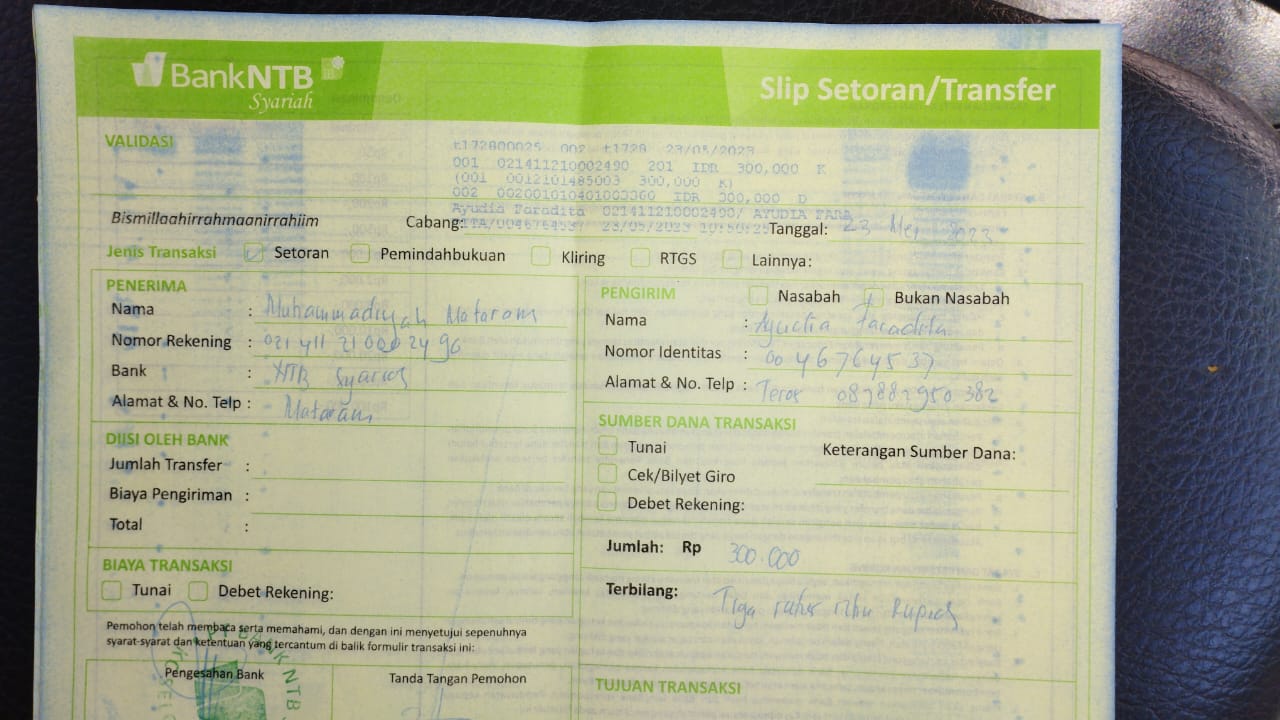 BankNTB
Syariah
Slip Setoran/Transfer
VALIDASI
t172800025 002 t1728 23/05/2023
001 021411210002490 201 IDR 300,000 K
(001 0012101485003 300,000 K)
002 002001010401003360 IDR 300,000 D
Ayudia Faradita 021411210002490/ AYUDIA FARA
/0046764537 23/05/2023 10:50:25
Bismillaahirrahmaanirrahiim
Cabang:
Tanggal: 23 Mei 2023
Jenis Transaksi Setoran Pemindahbukuan Kliring RTGS Lainnya:
PENERIMA
Nama : Muhammadiyah Mataram
Nomor Rekening : 021 411 21 000 2490
Bank : NTB Syariah
Alamat & No. Telp : Mataram
DIISI OLEH BANK
Jumlah Transfer :
Biaya Pengiriman :
Total :
BIAYA TRANSAKSI
Tunai Debet Rekening:
Pemohon telah membaca serta memahami, dan dengan ini menyetujui sepenuhnya
syarat-syarat dan ketentuan yang tercantum di balik formulir transaksi ini:
Pengesahan Bank
Tanda Tangan Pemohon
PENGIRIM Nasabah Bukan Nasabah
Nama : Ayudia Faradita
Nomor Identitas : 0046764537
Alamat & No. Telp : Teros 087882950382
SUMBER DANA TRANSAKSI
Tunai
Keterangan Sumber Dana:
Cek/Bilyet Giro
Debet Rekening:
Jumlah: Rp 300.000
Terbilang: Tiga ratus ribu Rupiah
TUJUAN TRANSAKSI